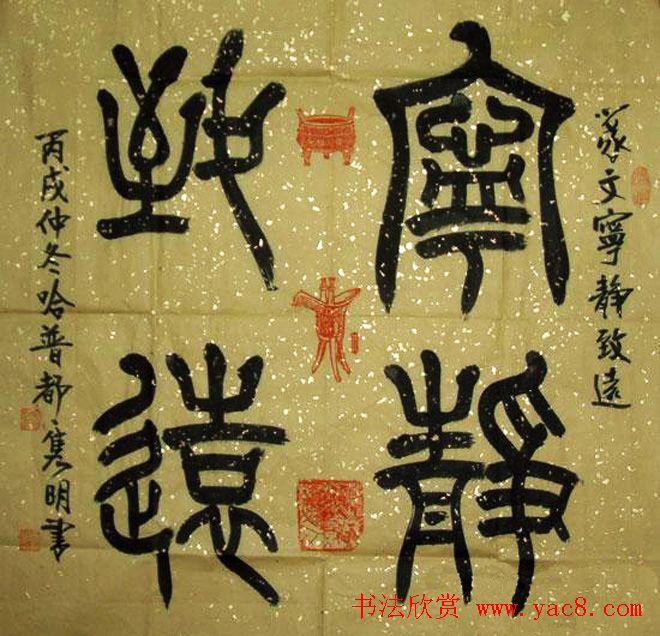 寧靜
致遠
篆文寧靜致遠
丙戌仲冬哈普都·寯明书
书法欣赏 www.yac8.com